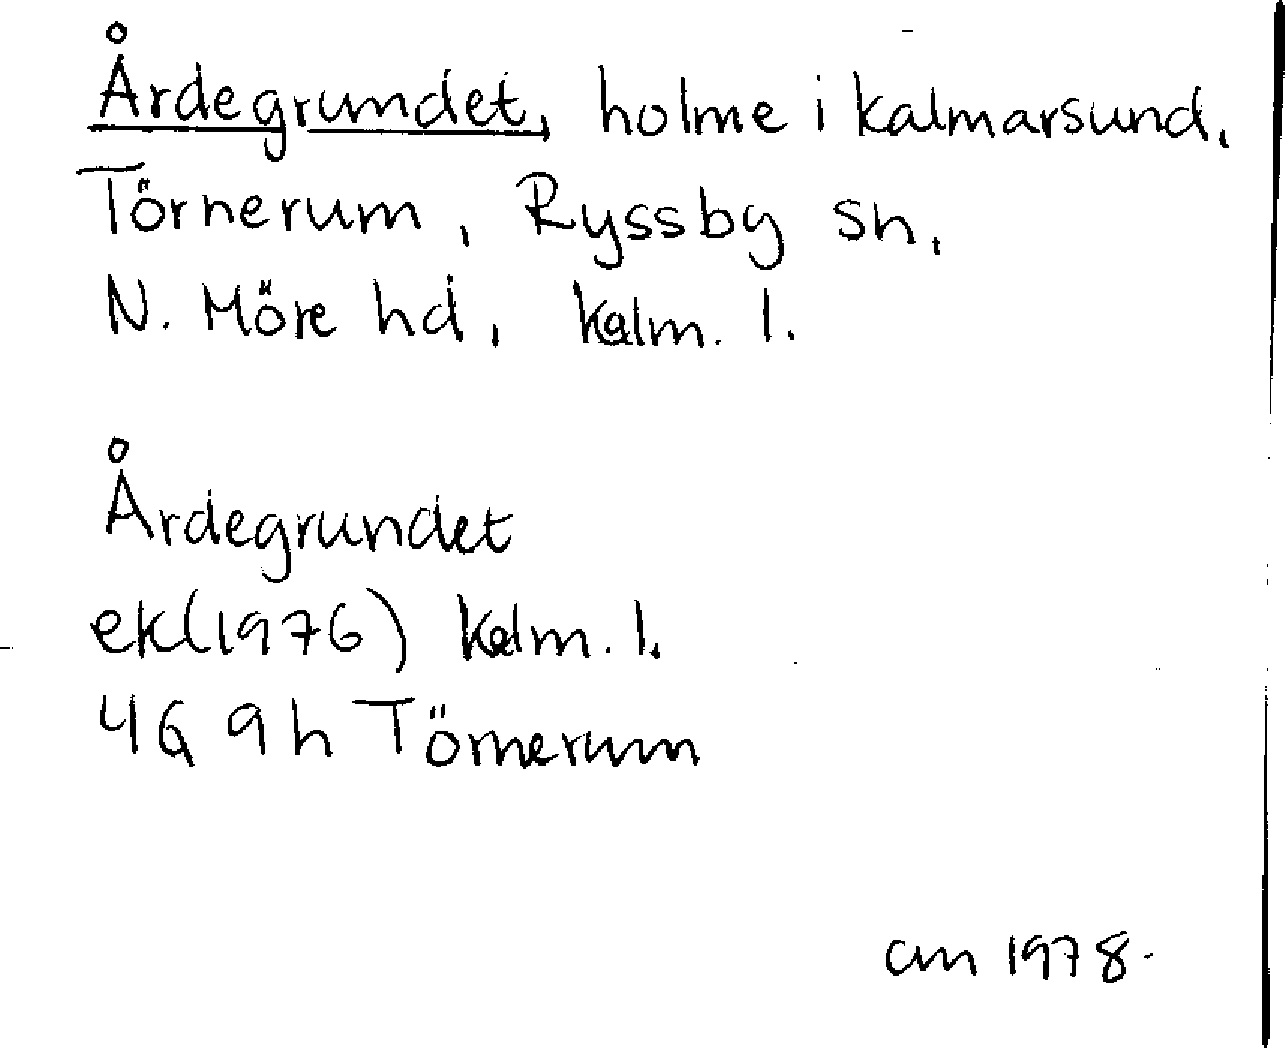 Årdegrundet, holme i Kalmarsund,
Törnerum, Ryssby sn,
N. Möre hd, Kalm. l.
Årdegrundet
ek(1976) Kalm. l.
4G 9h Törnerum
am 1978.